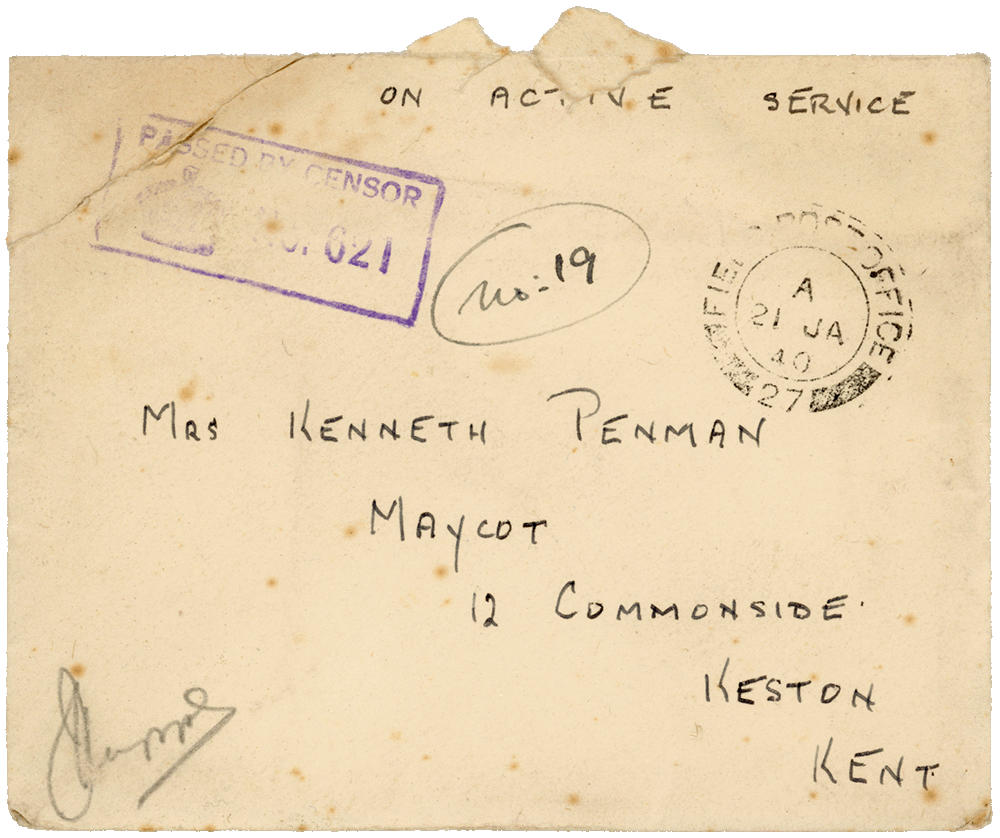 ON ACTIVE SERVICE
PASSED BY CENSOR
No. 621
No: 19
FIELD POST OFFICE
A
21 JA
40
27
Mrs KENNETH PENMAN
MAYCOT
12 COMMONSIDE.
KESTON
KENT